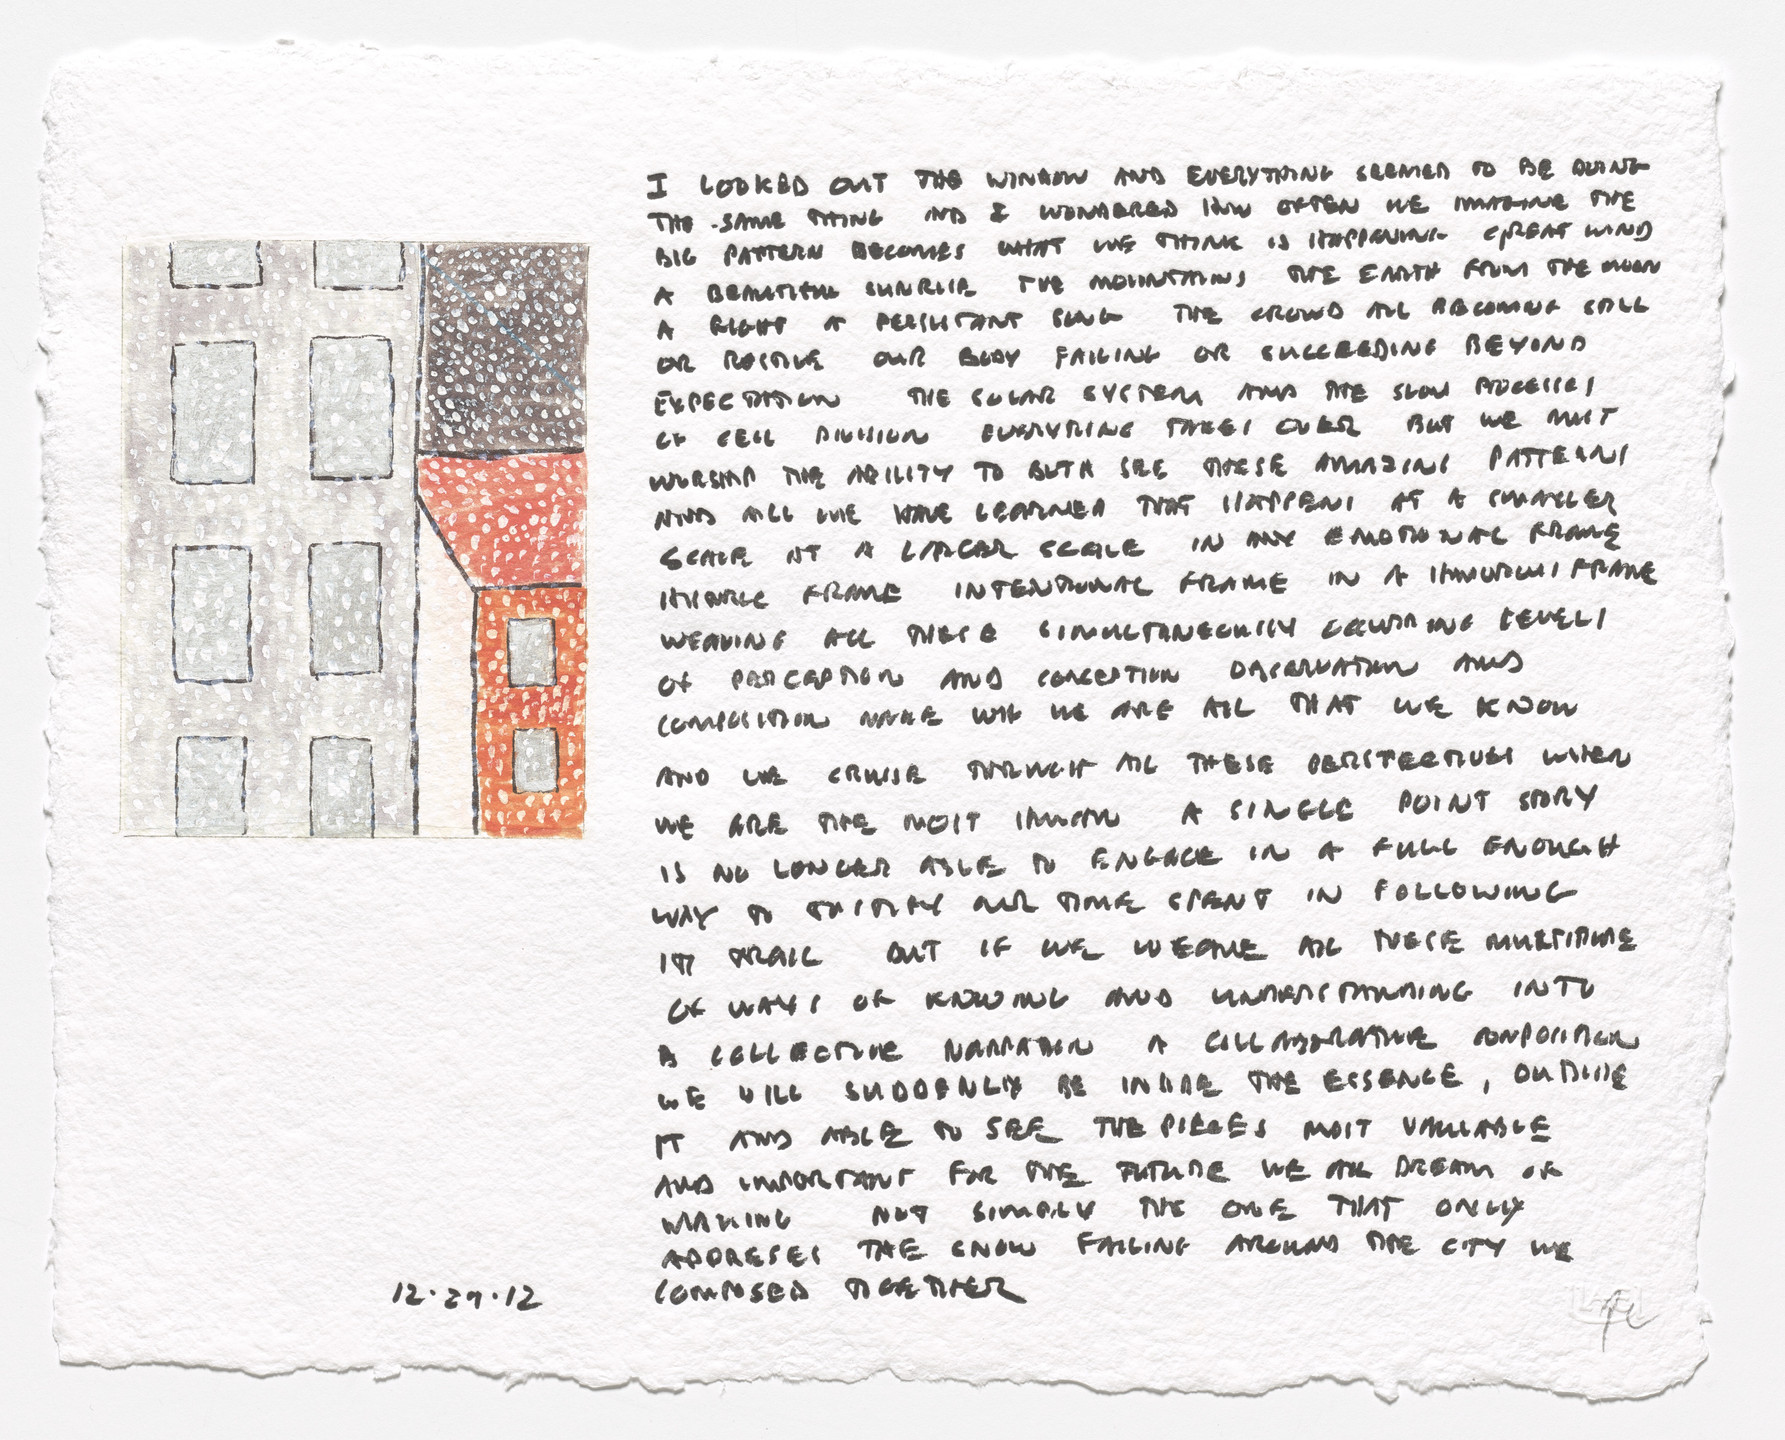 I LOOKED OUT THE WINDOW AND EVERYTHING SEEMED TO BE DOING
THE SAME THING AND I WONDERED HOW OFTEN WE IMAGINE THE
BIG PATTERN BECOMES WHAT WE THINK IS HAPPENING GREAT WIND
A BEAUTIFUL SUNRISE THE MOUNTAINS THE EARTH FROM THE MOON
A FIGHT A PERSISTANT SONG THE CROWD ALL BECOMING STILL
OR OUR BODY FAILING OR SUCCEEDING BEYOND
EXPECTATION THE SOLAR SYSTEM AND THE SLOW PROCESSES
OF CELL DIVISION EVERYTHING TAKES OVER BUT WE MUST
WORSHIP THE ABILITY TO BOTH SEE THESE AMAZING PATTERNS
AND ALL WE HAVE LEARNED THAT HAPPENS AT A SMALLER
SCALE AT A LARGER SCALE IN ANY EMOTIONAL FRAME
HISTORIC FRAME INTENTIONAL FRAME IN A HUMOROUS FRAME
WEAVING ALL THESE SIMULTANEOUSLY LEVELS
OF PERCEPTION AND CONCEPTION OBSERVATION AND
COMPOSITION MAKE WHO WE ARE ALL THAT WE KNOW
AND WE CRUISE THROUGH ALL THESE PERSPECTIVES WHEN
WE ARE THE MOST HUMAN A SINGLE POINT STORY
IS NO LONGER ABLE TO ENGAGE IN A FULL ENOUGH
WAY TO OUR TIME SPENT IN FOLLOWING
ITS TRAIL BUT IF WE WEAVE ALL THESE MULTITUDE
OF WAYS OF KNOWING AND UNDERSTANDING INTO
A COLLECTIVE NARRATION A COLLABORATIVE COMPOSITION
WE WILL SUDDENLY BE INSIDE THE ESSENCE, OUTSIDE
IT AND ABLE TO SEE THE PIECES MOST VALUABLE
AND IMPORTANT FOR THE FUTURE WE ALL DREAM OF
MAKING NOT SIMPLY THE ONE THAT ONLY
ADDRESES THE SNOW FALLING AROUND THE CITY WE
COMPOSED TOGETHER
12.29.12